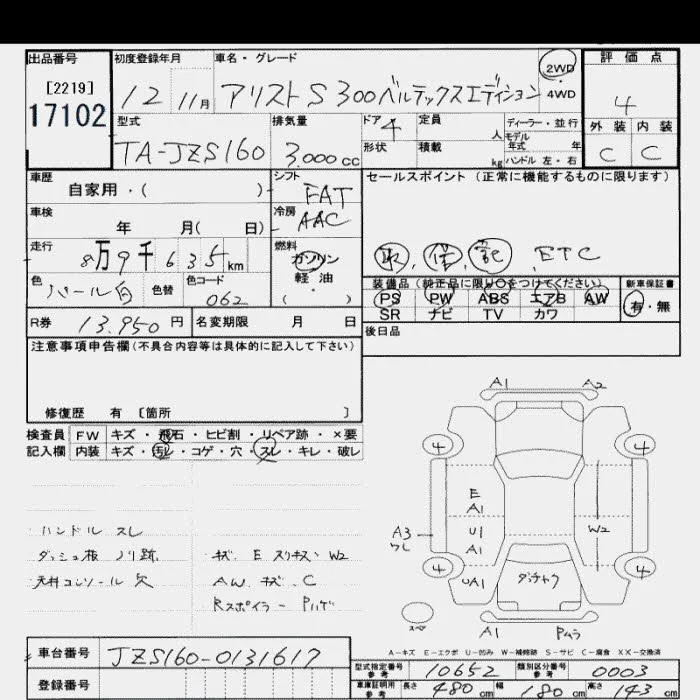 出品番号 初度登録年月 車名・グレード 2WD 評価点
[2219] 12 11月 アリスト S300ベルテックスエディション 4WD 4
17102 型式 排気量 ドア 4 定員 人 ディーラー・並行 外装 内装
TA-JZS160 3,000cc 形状 積載 kg モデル年式 年 ハンドル 左・右 C C
車歴 シフト セールスポイント (正常に機能するものに限ります)
自家用・( ) FAT
車検 冷房 AAC
年 月( 日)
走行 燃料 取, 保, 記, ETC
8万9千635km ガソリン
色 色替 色コード 軽油 装備品 (純正品に限り○をつけてください) 新車保証書
パール白 062 ( ) PS PW ABS エアB AW 有・無
R券 13,950円 名変期限 月 日 SR ナビ TV カワ
注意事項申告欄(不具合内容等は具体的に記入して下さい) 後日品
修復歴 有 [箇所 ]
検査員 FW キズ・飛石・ヒビ割・リペア跡・×要
記入欄 内装 キズ・汚レ・コゲ・穴・スレ・キレ・破レ
A1 A2
4 4
E
A1
A3 ワレ U1 W2
A1
4 UA1 ダッチャク 4
スペア A1 Pムラ
ハンドル スレ
ダッシュ板 ノリ跡 キズ. E スリキズ. W2
天井コンソール 欠 AW. キズ. C
Rスポイラー Pハゲ
A-キズ E-エクボ U-凹み W-補修跡 S-サビ C-腐食 XX-交換済
車台番号 JZS160-0131617 型式指定番号 参考 10652 類別区分番号 参考 0003
登録番号 車庫証明用 参考 長さ 480cm 幅 180cm 高さ 143cm